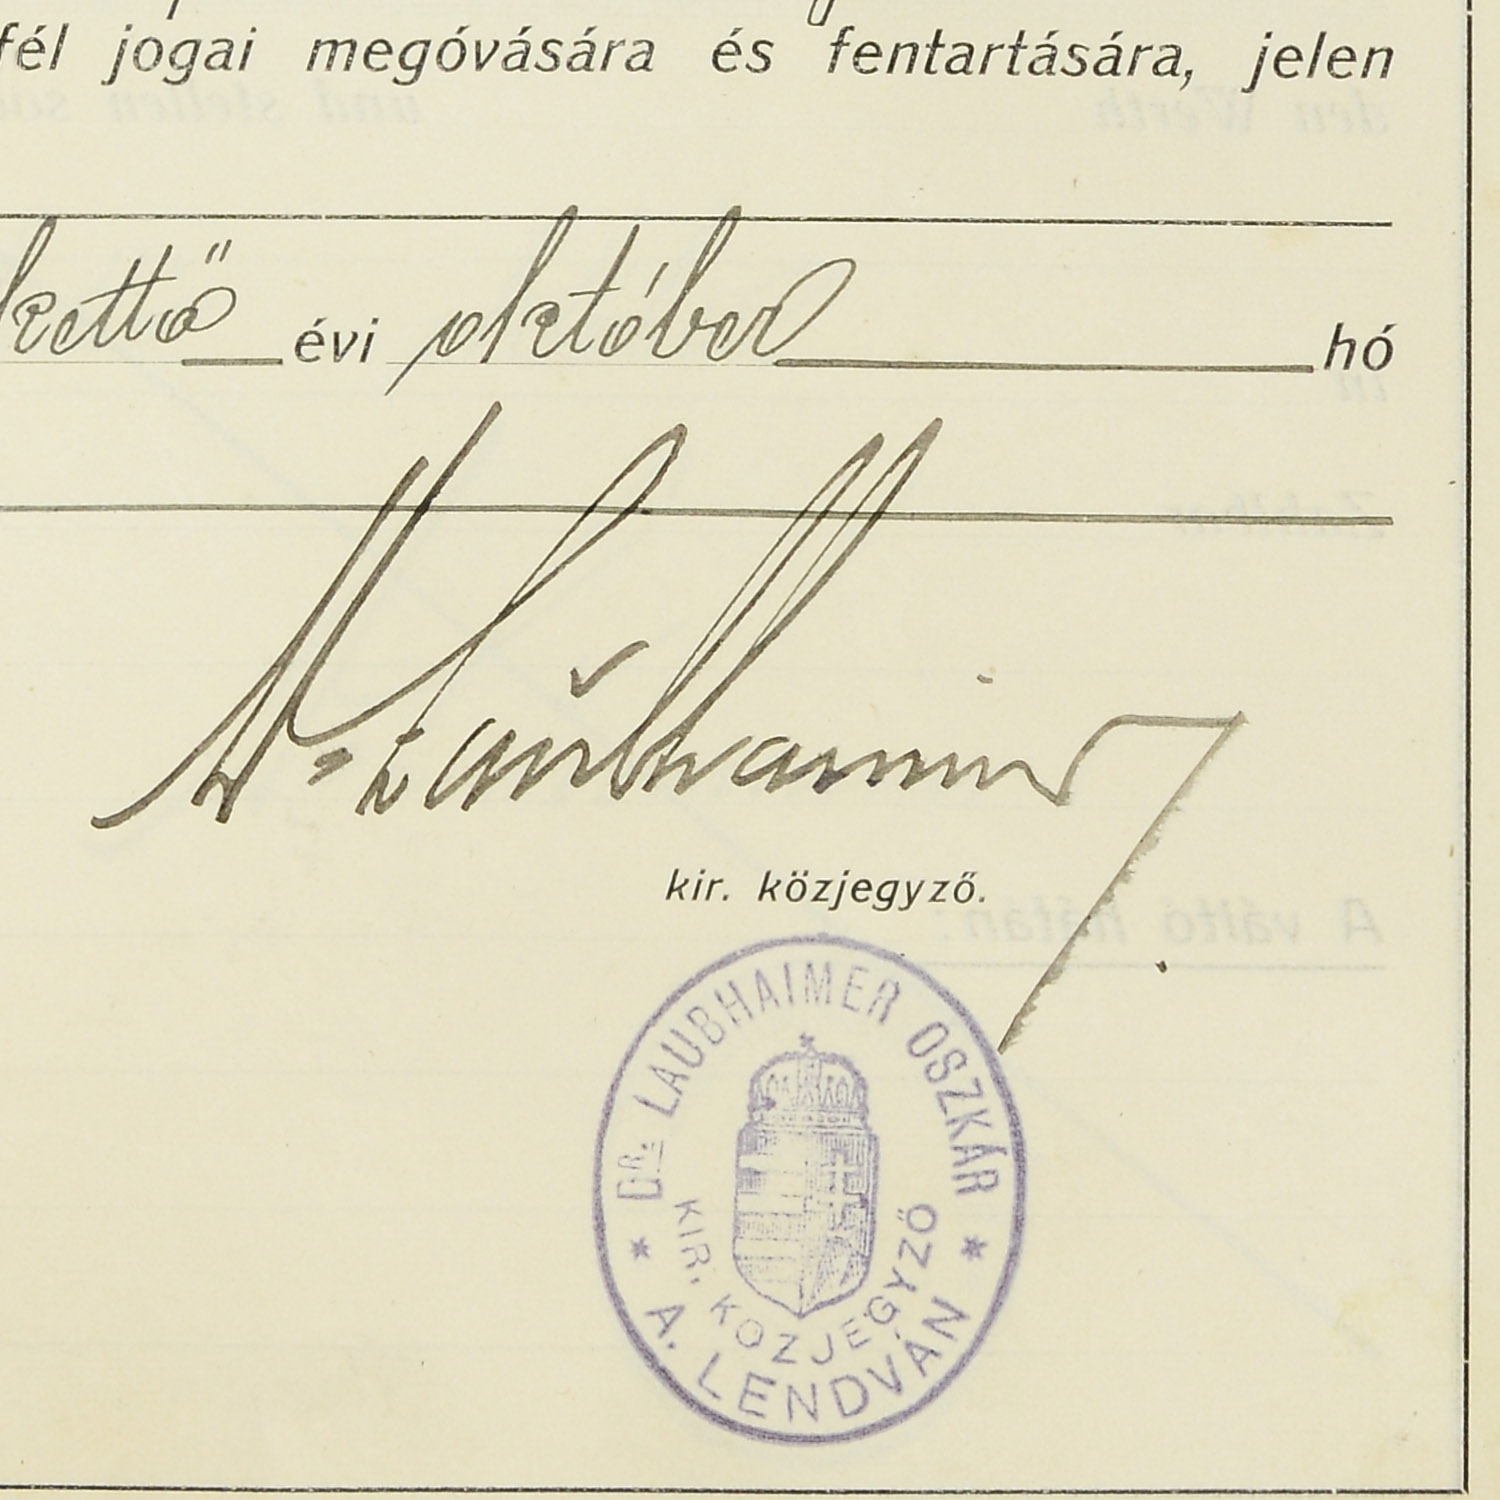 fél jogai megóvására és fentartására, jelen
kettő évi október hó
Dr Laubhaimer
kir. közjegyző.
DR. LAUBHAIMER OSZKÁR
KIR. KÖZJEGYZŐ
* A. LENDVÁN *